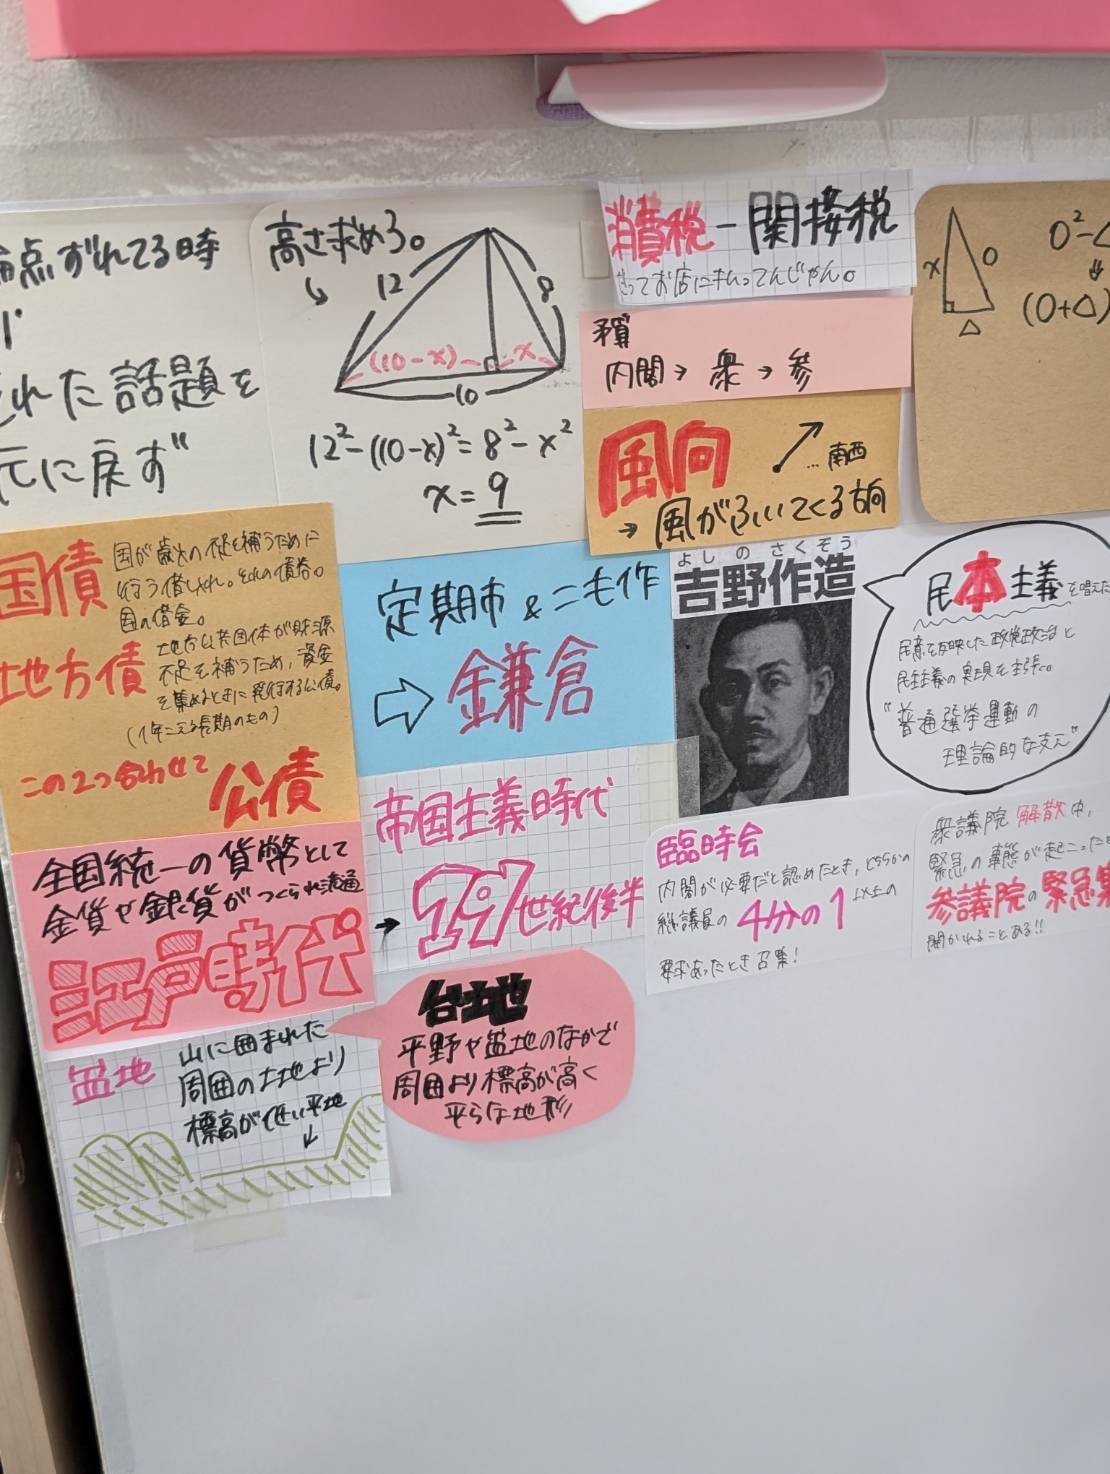 点ずれてる時
れた話題を
元に戻す"
高さ求めろ。
12
8
(10-x)
x
10
12²-(10-x)²=8²-x²
x=9
消費税-間接税
だってお店に払ってんじゃん。
予算
内閣→衆→参
風向
...南西
→風がふいてくる方向
x
○
△
○²-△
(○+△)
国債
国が歳入の不足を補うために
行う借り入れ。それの債券。
国の借金。
地方債
地方公共団体が財源
不足を補うため、資金
を集めるときに発行する公債。
(1年こえる長期のもの)
この2つ合わせて
公債
定期市&二毛作
⇨鎌倉
よしのさくぞう
吉野作造
民本主義を唱えた
民意を反映した政党政治と
民主主義の実現を主張。
"普通選挙運動の
理論的な支え"
全国統一の貨幣として
金貨や銀貨がつくられ流通
江戸時代
帝国主義時代
→19世紀後半
臨時会
内閣が必要だと認めたとき、どちらかの
総議員の4分の1以上の
要求あったとき召集!
衆議院解散中、
緊急の事態が起こったと
参議院の緊急集
開かれることある!!
盆地
山に囲まれた
周囲の土地より
標高が低い平地
台地
平野や盆地のなかで
周囲より標高が高く
平らな地形